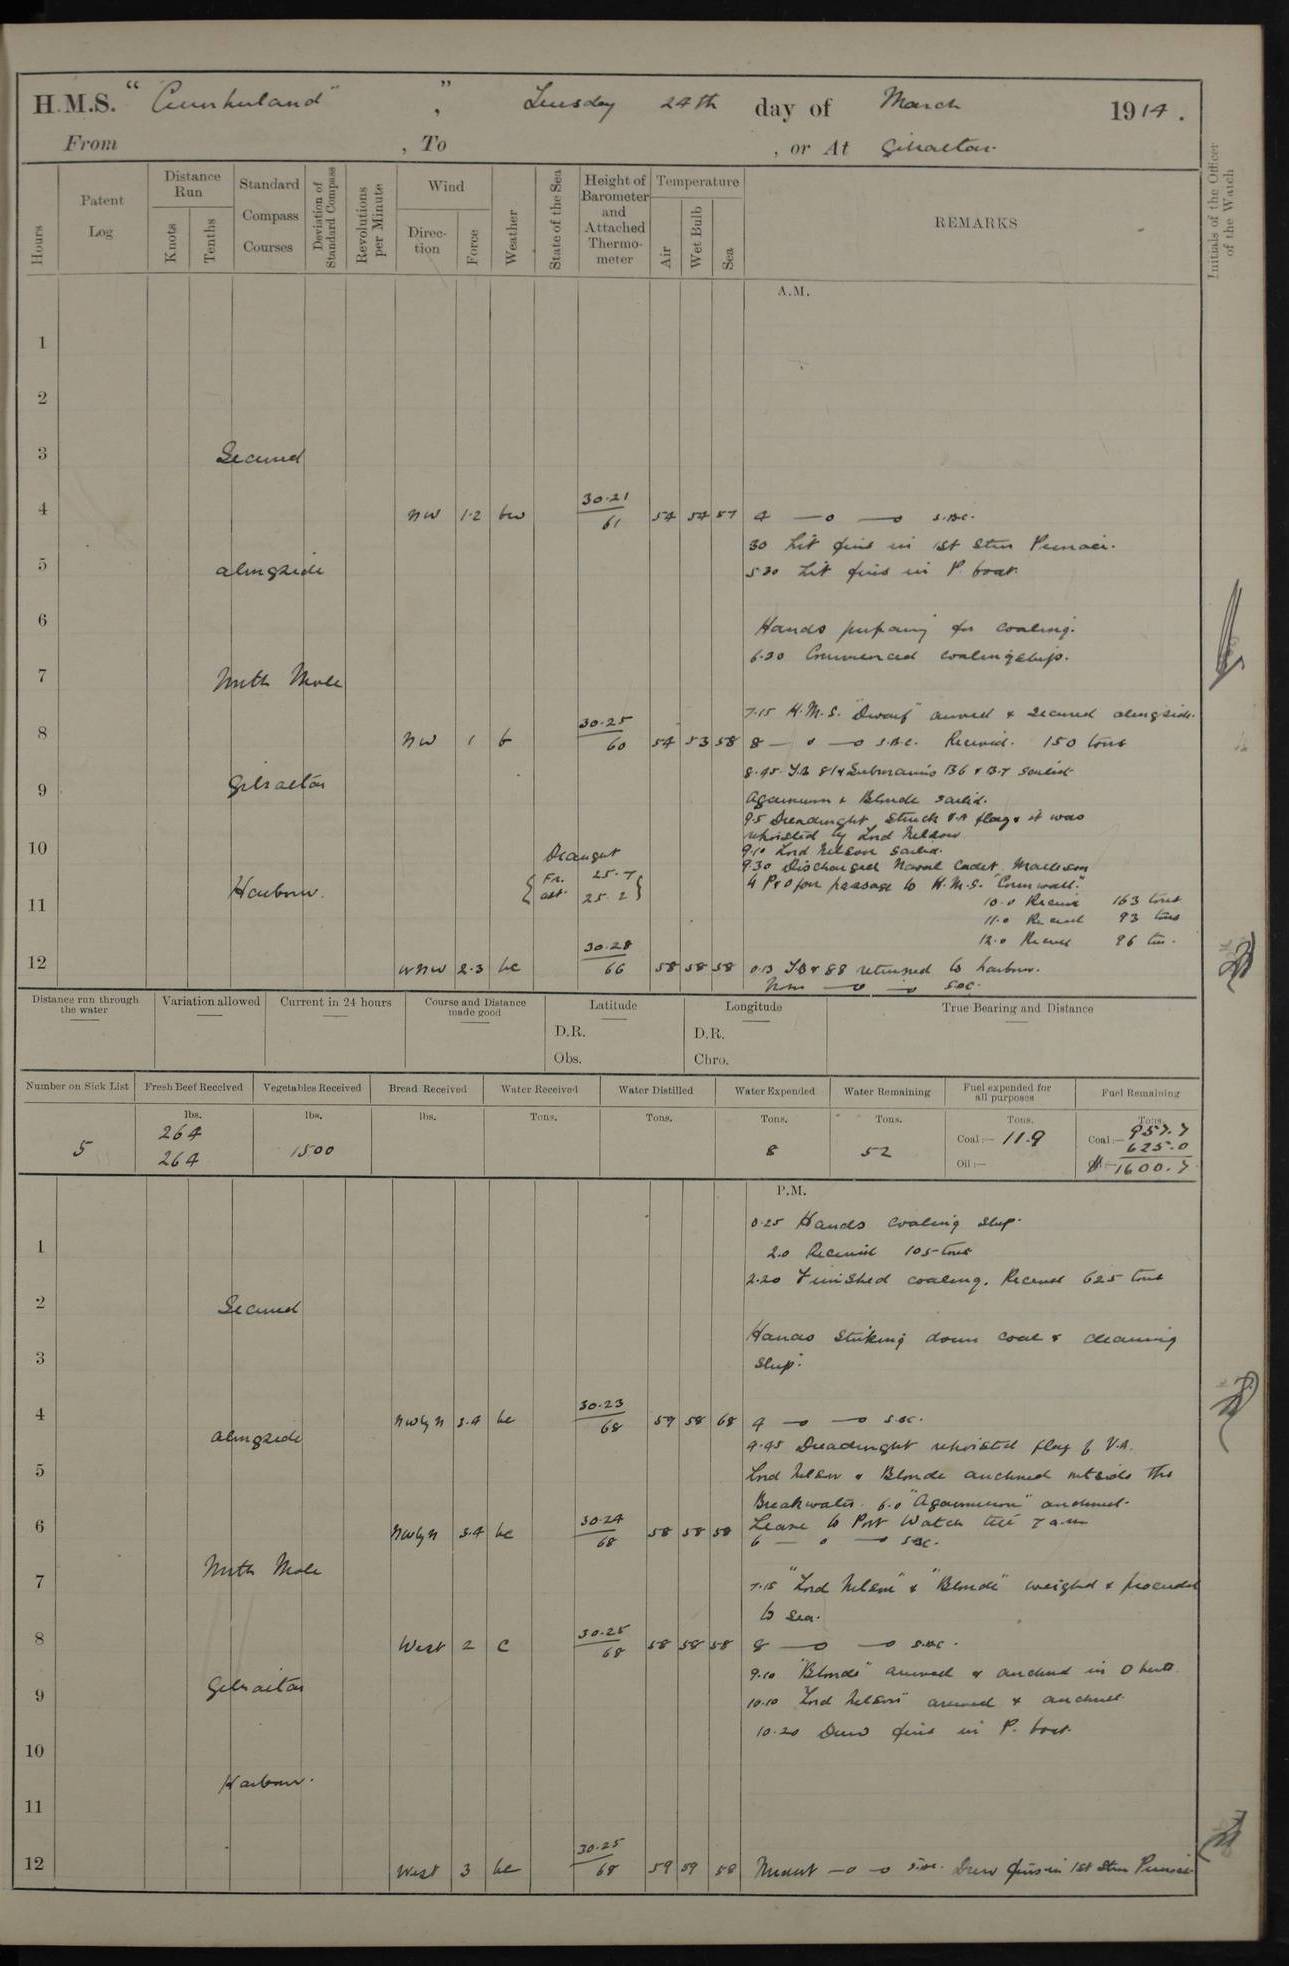 H.M.S. "Cumberland", Tuesday 24th day of March 1914.
From , To , or At Gibraltar
Hours
Patent Log
Distance Run
Knots
Tenths
Standard Compass Courses
Deviation of Standard Compass
Revolutions per Minute
Wind
Direction
Force
Weather
State of the Sea
Height of Barometer and Attached Thermometer
Temperature
Air
Wet Bulb
Sea
REMARKS
Initials of the Officer of the Watch
A.M.
1
2
3 Secured
4 NW 1.2 bw 30.21 61 54 54 57 4 —o —o s.b.c.
30 Lit fires in 1st Stm Pinnace.
5 alongside 5.30 Lit fires in P. boat.
6 Hands preparing for coaling.
6.30 Commenced coaling ship.
7 North Mole
7.15 H.M.S. "Dwarf" arrived & secured alongside.
8 NW 1 b 30.25 60 54 53 58 8 — o —o s.b.c. Received. 150 tons
8.45 T.B 81 & Submarines B6 & B.7 sailed
9 Gibraltar Agamemnon & Blonde sailed.
9.5 Dreadnought struck V.A flag & it was
rehoisted by Lord Nelson.
10 9.10 Lord Nelson sailed.
Draught 9.30 Discharged Naval Cadet
Fr. 25.7 4 P.O for passage to H.M.S. "Cornwall."
Harbour. aft. 25.2 10.0 Receive 163 tons
11 11.0 Received 93 tons
12.0 Received 96 tns.
12 WNW 2.3 bc 30.28 66 58 58 58 T.B & 88 returned to harbour.
Noon —o —o s.b.c.
Distance run through the water
Variation allowed
Current in 24 hours
Course and Distance made good
Latitude
D.R.
Obs.
Longitude
D.R.
Chro.
True Bearing and Distance
Number on Sick List
Fresh Beef Received
Vegetables Received
Bread Received
Water Received
Water Distilled
Water Expended
Water Remaining
Fuel expended for all purposes
Fuel Remaining
lbs. lbs. lbs. Tons. Tons. Tons. Tons. Tons. Tons.
5 264 1500 8 52 Coal:— 11.9 Coal:— 957.7
264 625.0
Oil:— 1600.7
P.M.
0.25 Hands coaling ship.
1 2.0 Received 105 tons
2.20 Finished coaling. Received 625 tons
2 Secured
Hands striking down coal & cleaning
3 ship.
4 NWbyN 3.4 bc 30.23 68 59 58 68 4 —o —o s.b.c.
alongside 4.45 Dreadnought rehoisted flag of V.A.
5 Lord Nelson & Blonde anchored outside the
Breakwater. 6.0 "Agamemnon" anchored.
6 NWbyN 3.4 bc 30.24 68 58 58 58 Leave to Port Watch till 7 a.m
6 — o —o s.b.c.
North Mole
7 7.15 "Lord Nelson" & "Blonde" weighed & proceeded
to sea.
8 West 2 c 30.25 68 58 58 58 8 —o —o s.b.c.
9.10 "Blonde" arrived & anchored in
9 Gibraltar 10.10 "Lord Nelson" arrived & anchored.
10.20 Drew fires in P. boat.
10
Harbour.
11
12 West 3 bc 30.25 68 59 59 58 Midnt —o —o s.b.c. Drew fires in 1st Stm Pinnace